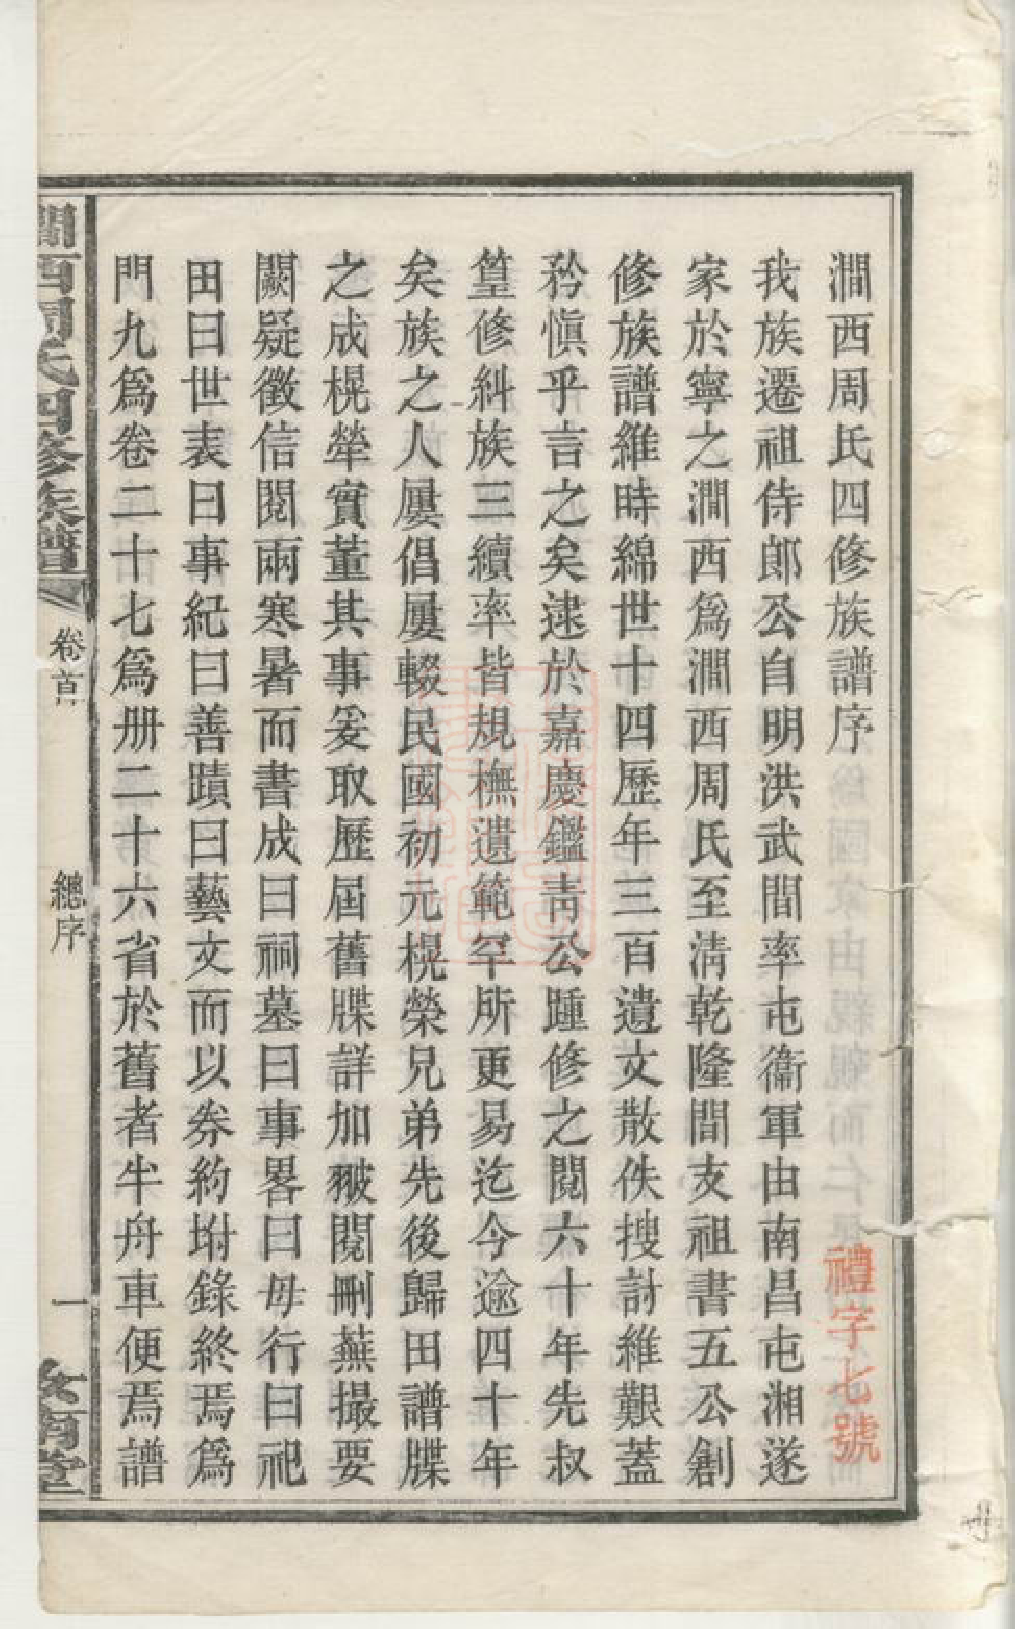 澗西周氏四修族譜序
禮字七號
我族遷祖侍郎公自明洪武間率屯衞軍由南昌屯湘遂
家於寧之澗西爲澗西周氏至淸乾隆間支祖書五公創
修族譜維時綿世十四歷年三百遺文散佚搜討維艱蓋
矜愼乎言之矣逮於嘉慶鑑靑公踵修之閱六十年先叔
篁修糾族三續率皆規橅遺範罕所更易迄今逾四十年
矣族之人屢倡屢輟民國初元榥榮兄弟先後歸田譜牒
之成榥犖實董其事爰取歷屆舊牒詳加覈閱刪蕪撮要
闕疑徵信閱兩寒暑而書成曰祠墓曰事畧曰母行曰祀
田曰世表曰事紀曰善蹟曰藝文而以券約坿錄終焉爲
門九爲卷二十七爲册二十六省於舊者半舟車便焉譜
澗西周氏四修族譜
卷首
總序
一
汝南堂